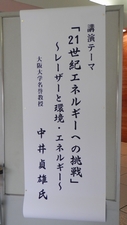 講演テーマ
「21世紀エネルギーへの挑戦」
～レーザーと環境・エネルギー～
大阪大学名誉教授
中井貞雄氏